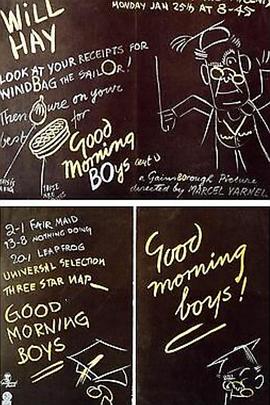 MONDAY JAN 25th AT 8-45
WiLL
HAY
LOOK AT YOUR RECEIPTS FOR
WINDBAG THE SAILOR!
Then
on your
best
for
Good
Morning
BOys
a Gainsborough Picture
directed by MARCEL VARNEL
2-1 FAIR MAID
13-8 NOTHING DOING
20/1 LEAPFROG
UNIVERSAL SELECTION
THREE STAR NAP
GOOD
MORNING
BOYS
Good
morning
boys!